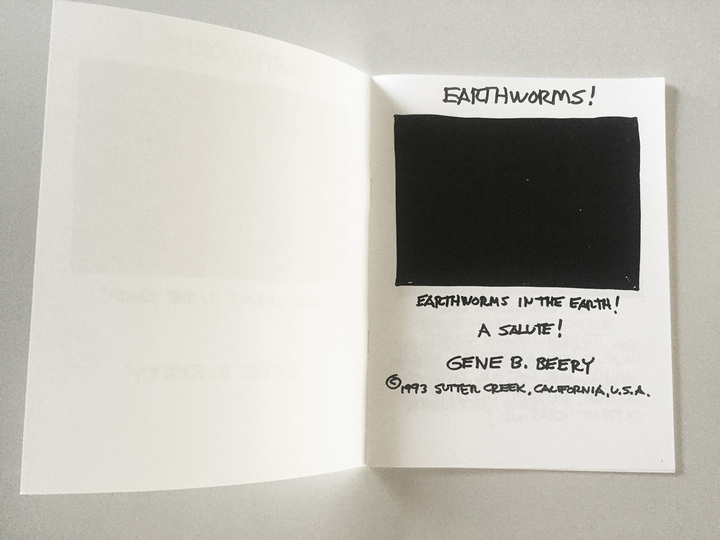 EARTHWORMS!
EARTHWORMS IN THE EARTH!
A SALUTE!
GENE B. BEERY
©1993 SUTTER CREEK, CALIFORNIA, U.S.A.